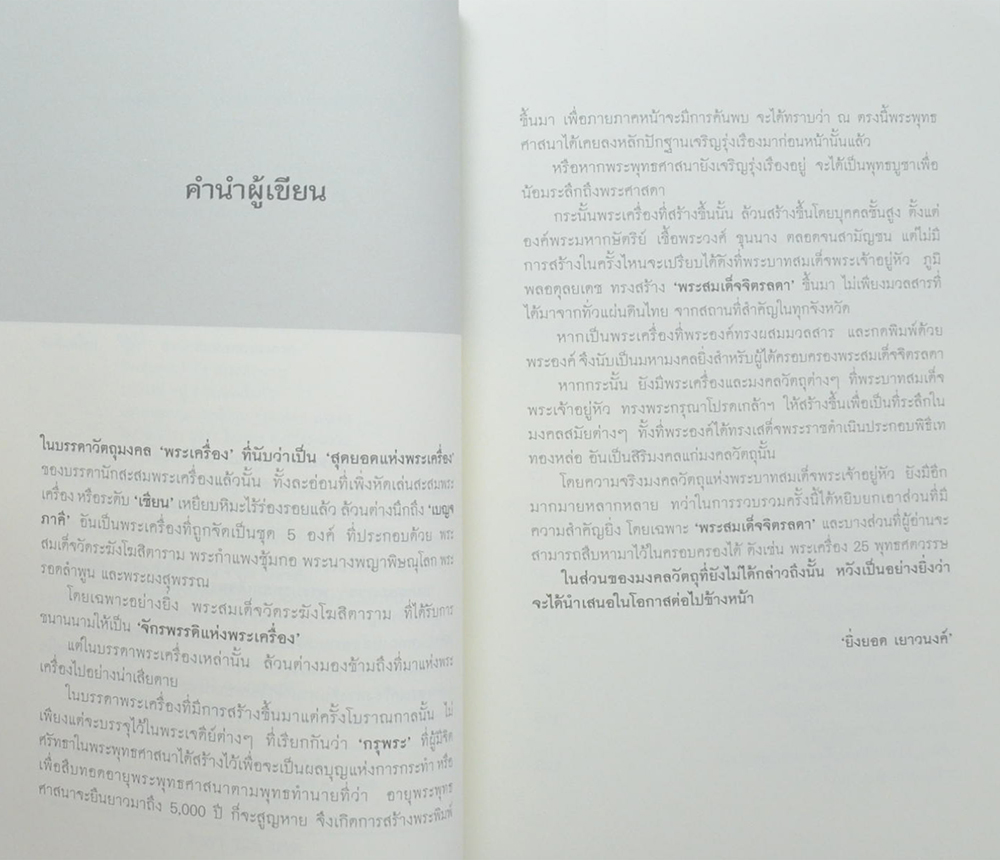 คำนำผู้เขียน
ในบรรดาวัตถุมงคล ‘พระเครื่อง’ ที่นับว่าเป็น ‘สุดยอดแห่งพระเครื่อง’
ของบรรดานักสะสมพระเครื่องแล้วนั้น ทั้งละอ่อนที่เพิ่งหัดเล่นสะสมพระ
เครื่อง หรือระดับ ‘เซียน’ เหยียบหิมะไร้ร่องรอยแล้ว ล้วนต่างนึกถึง ‘เบญจ
ภาคี’ อันเป็นพระเครื่องที่ถูกจัดเป็นชุด 5 องค์ ที่ประกอบด้วย พระ
สมเด็จวัดระฆังโฆสิตาราม พระกำแพงซุ้มกอ พระนางพญาพิษณุโลก พระ
รอดลำพูน และพระผงสุพรรณ
โดยเฉพาะอย่างยิ่ง พระสมเด็จวัดระฆังโฆสิตาราม ที่ได้รับการ
ขนานนามให้เป็น ‘จักรพรรดิแห่งพระเครื่อง’
แต่ในบรรดาพระเครื่องเหล่านั้น ล้วนต่างมองข้ามถึงที่มาแห่งพระ
เครื่องไปอย่างน่าเสียดาย
ในบรรดาพระเครื่องที่มีการสร้างขึ้นมาแต่ครั้งโบราณกาลนั้น ไม่
เพียงแต่จะบรรจุไว้ในพระเจดีย์ต่างๆ ที่เรียกกันว่า ‘กรุพระ’ ที่ผู้มีจิต
ศรัทธาในพระพุทธศาสนาได้สร้างไว้เพื่อจะเป็นผลบุญแห่งการกระทำ หรือ
เพื่อสืบทอดอายุพระพุทธศาสนาตามพุทธทำนายที่ว่า อายุพระพุทธ
ศาสนาจะยืนยาวมาถึง 5,000 ปี ก็จะสูญหาย จึงเกิดการสร้างพระพิมพ์
ขึ้นมา เพื่อภายภาคหน้าจะมีการค้นพบ จะได้ทราบว่า ณ ตรงนี้พระพุทธ
ศาสนาได้เคยลงหลักปักฐานเจริญรุ่งเรืองมาก่อนหน้านั้นแล้ว
หรือหากพระพุทธศาสนายังเจริญรุ่งเรืองอยู่ จะได้เป็นพุทธบูชาเพื่อ
น้อมระลึกถึงพระศาสดา
กระนั้นพระเครื่องที่สร้างขึ้นนั้น ล้วนสร้างขึ้นโดยบุคคลชั้นสูง ตั้งแต่
องค์พระมหากษัตริย์ เชื้อพระวงศ์ ขุนนาง ตลอดจนสามัญชน แต่ไม่มี
การสร้างในครั้งไหนจะเปรียบได้ดังที่พระบาทสมเด็จพระเจ้าอยู่หัว ภูมิ
พลอดุลยเดช ทรงสร้าง ‘พระสมเด็จจิตรลดา’ ขึ้นมา ไม่เพียงมวลสารที่
ได้มาจากทั่วแผ่นดินไทย จากสถานที่สำคัญในทุกจังหวัด
หากเป็นพระเครื่องที่พระองค์ทรงผสมมวลสาร และกดพิมพ์ด้วย
พระองค์ จึงนับเป็นมหามงคลยิ่งสำหรับผู้ได้ครอบครองพระสมเด็จจิตรลดา
หากกระนั้น ยังมีพระเครื่องและมงคลวัตถุต่างๆ ที่พระบาทสมเด็จ
พระเจ้าอยู่หัว ทรงพระกรุณาโปรดเกล้าฯ ให้สร้างขึ้นเพื่อเป็นที่ระลึกใน
มงคลสมัยต่างๆ ทั้งที่พระองค์ได้ทรงเสด็จพระราชดำเนินประกอบพิธีเท
ทองหล่อ อันเป็นสิริมงคลแก่มงคลวัตถุนั้น
โดยความจริงมงคลวัตถุแห่งพระบาทสมเด็จพระเจ้าอยู่หัว ยังมีอีก
มากมายหลากหลาย ทว่าในการรวบรวมครั้งนี้ได้หยิบยกเอาส่วนที่มี
ความสำคัญยิ่ง โดยเฉพาะ ‘พระสมเด็จจิตรลดา’ และบางส่วนที่ผู้อ่านจะ
สามารถสืบหามาไว้ในครอบครองได้ ดังเช่น พระเครื่อง 25 พุทธศตวรรษ
ในส่วนของมงคลวัตถุที่ยังไม่ได้กล่าวถึงนั้น หวังเป็นอย่างยิ่งว่า
จะได้นำเสนอในโอกาสต่อไปข้างหน้า
‘ยิ่งยอด เยาวนงค์’